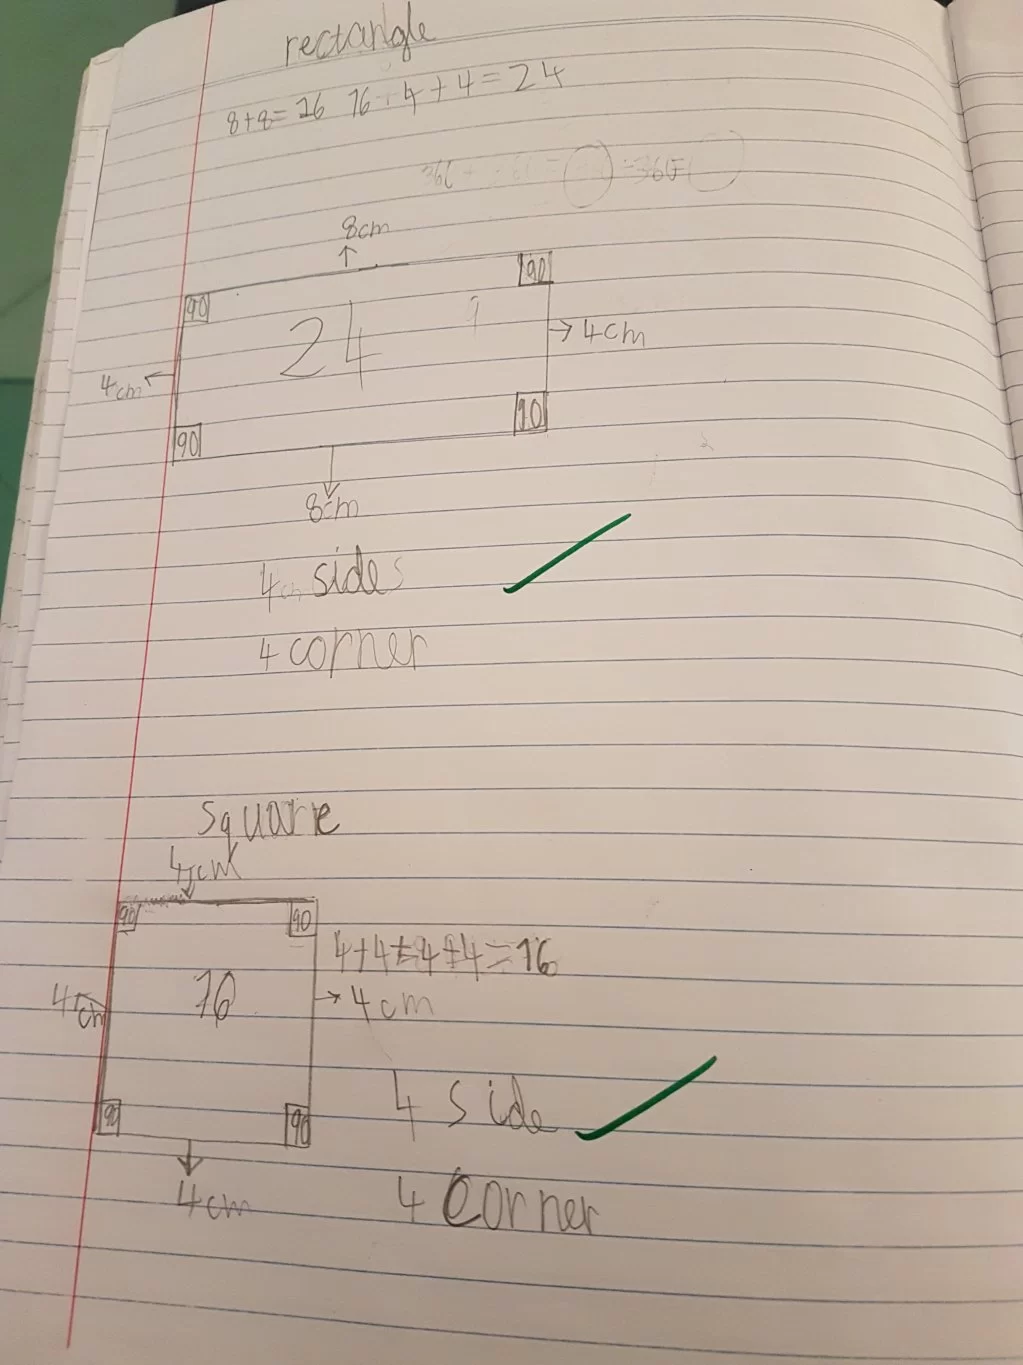 rectangle
8+8=16 16+4+4=24
8cm
90
90
24
4cm
4cm
90
90
8cm
4 sides
4 corner
square
4cm
90
90
4+4+4+4=16
16
4cm
4cm
4 side
90
90
4cm
4 corner